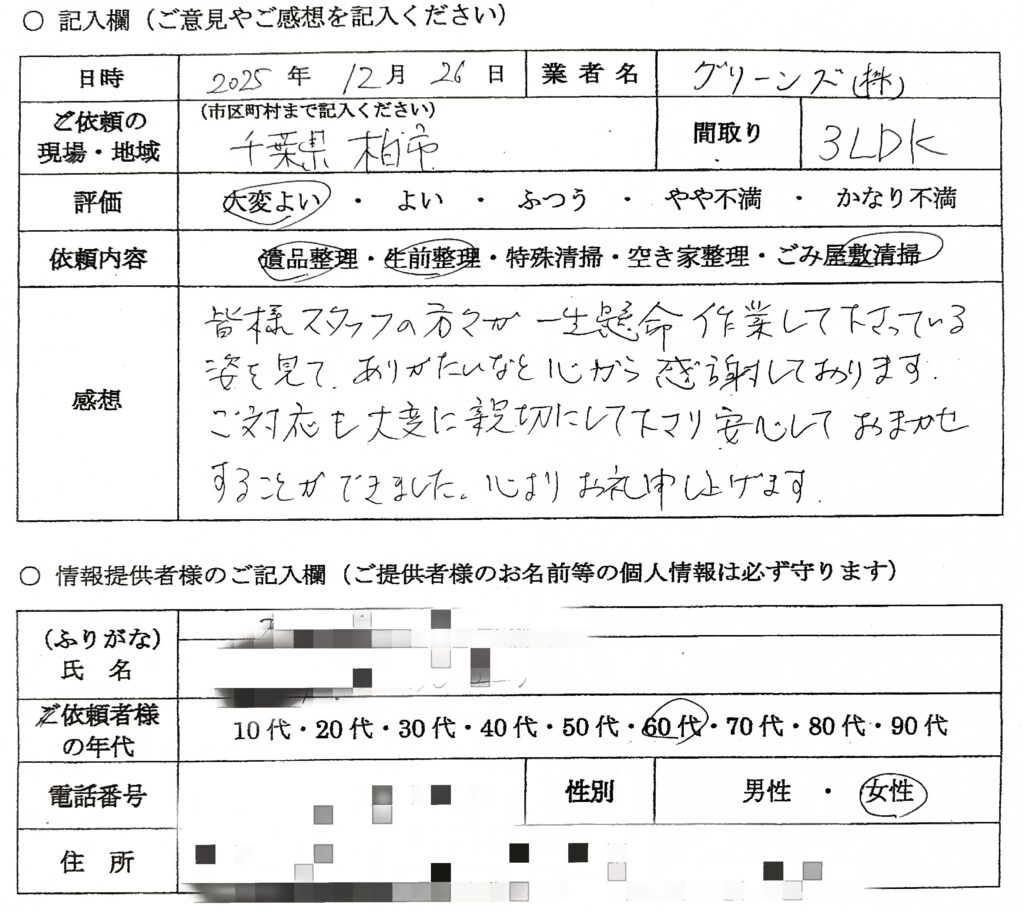 ○ 記入欄（ご意見やご感想を記入ください）
日時 2025 年 12 月 26 日 業者名 グリーンズ(株)
ご依頼の現場・地域 （市区町村まで記入ください） 千葉県 柏市 間取り 3LDK
評価 大変よい ・ よい ・ ふつう ・ やや不満 ・ かなり不満
依頼内容 遺品整理・生前整理・特殊清掃・空き家整理・ごみ屋敷清掃
感想
皆様スタッフの方々が一生懸命作業して下さっている
姿を見て、ありがたいなと心から感謝しております。
ご対応も大変に親切にして下さり安心しておまかせ
することができました。心よりお礼申し上げます。
○ 情報提供者様のご記入欄（ご提供者様のお名前等の個人情報は必ず守ります）
（ふりがな）
氏 名
ご依頼者様の年代 10代・20代・30代・40代・50代・60代・70代・80代・90代
電話番号 性別 男性 ・ 女性
住 所